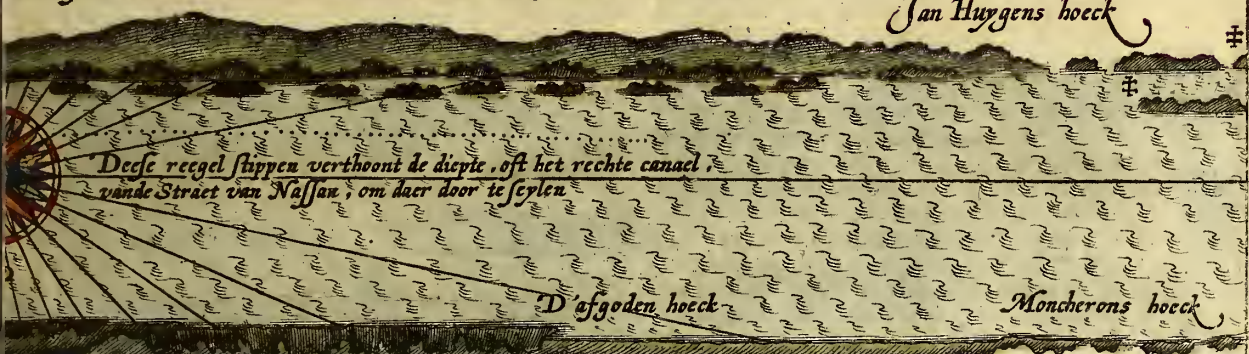 Jan Huygens hoeck
Deese reegel stippen verthoont de diepte, oft het rechte canael,
vande Straet van Nassau; om daer door te seylen
D'afgoden hoeck
Moncherons hoeck